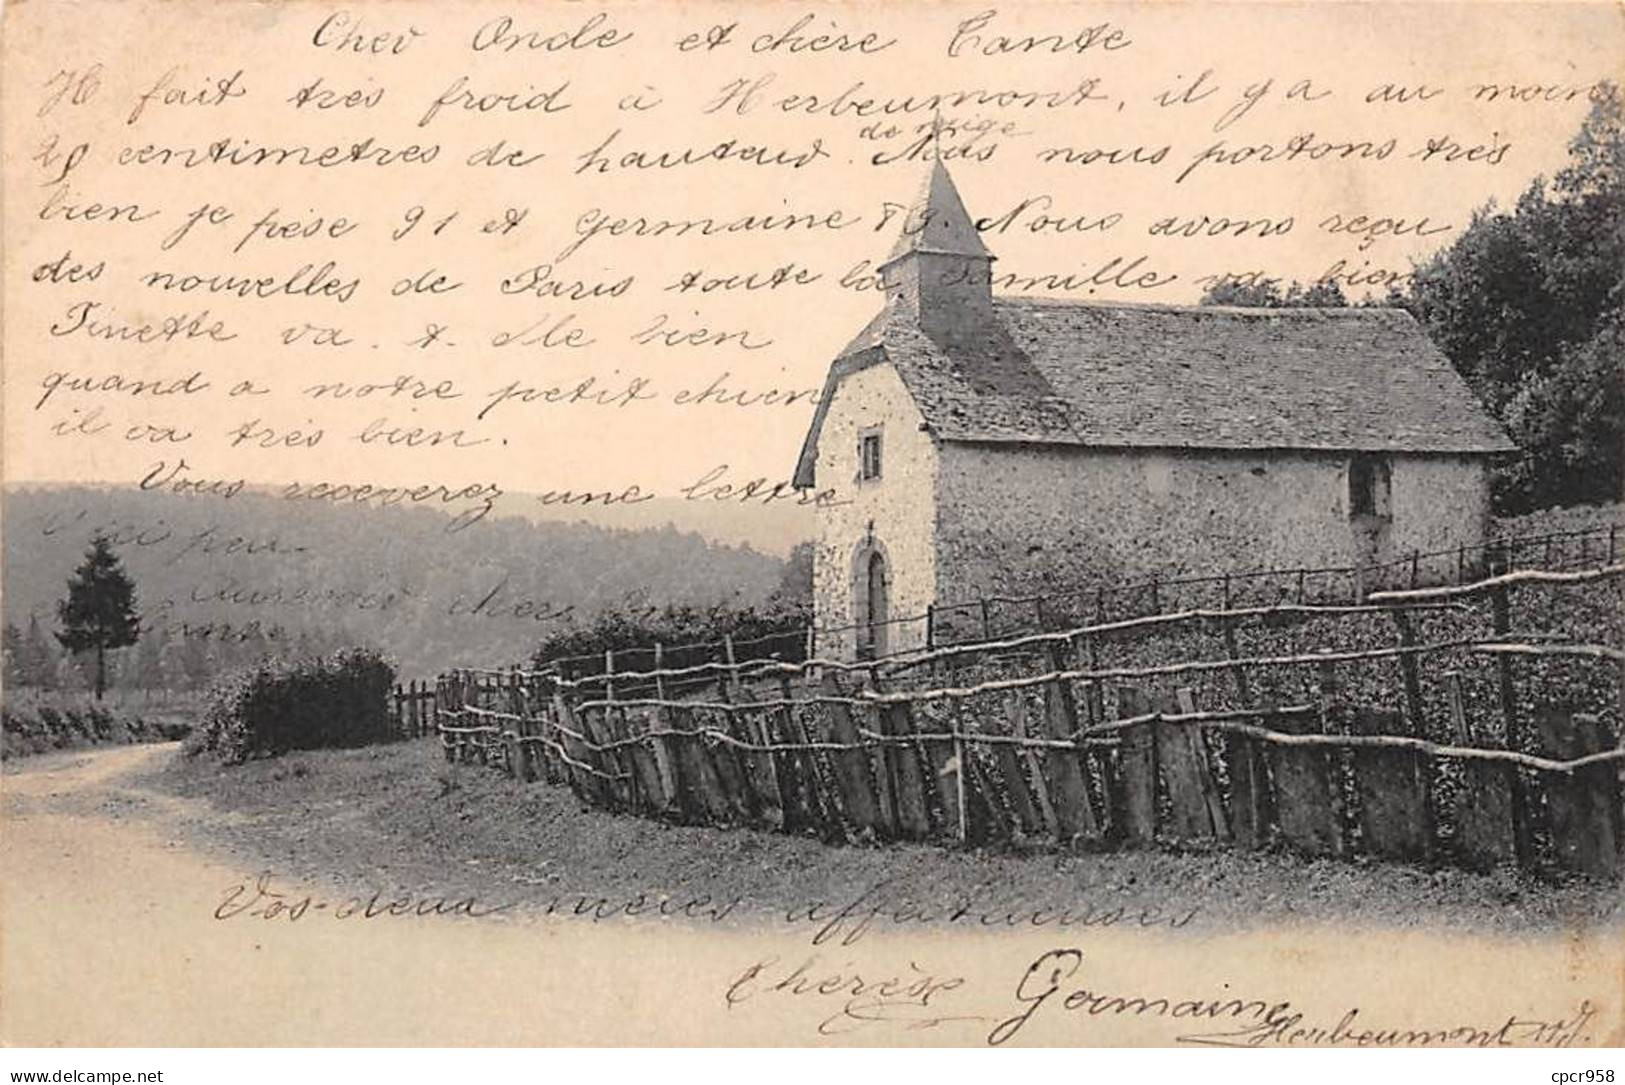 Cher Oncle et chère Tante
Il fait très froid à Herbeumont, il y a au moins
de neige
centimetres de hauteur. Nous nous portons très
bien je pèse 91 et Germaine 89. Nous avons reçu
des nouvelles de Paris toute la famille va bien
Finette va . t. elle bien
quand a notre petit chien
il va très bien.
Vous receverez une lettre
d'ici peu.
Aurevoir chers
Tante
Vos deux nièces affectueuses
Thérèse Germaine
Herbeumont
www.delcampe.net
cpcr958